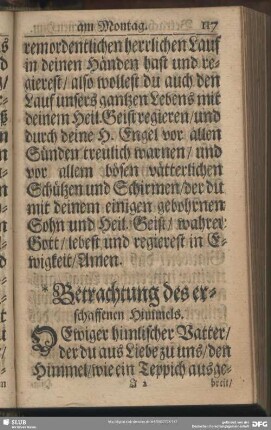 am Montag. 117
remordentlichen herrlichen Lauf
in deinen Händen hast und re-
gierest / also wollest du auch den
Lauf unsers gantzen Lebens mit
deinem Heil. Geist regieren / und
durch deine H. Engel vor allen
Sünden treulich warnen / und
vor allem bösen vätterlichen
Schützen und Schirmen / der du
mit deinem einigen gebohrnen
Sohn und Heil. Geist / wahrer
Gott / lebest und regierest in E-
wigkeit / Amen.
* Betrachtung des er-
schaffenen Himmels.
O Ewiger himlischer Vatter /
der du aus Liebe zu uns / den
Himmel / wie ein Teppich ausge-
breit /
SLUB